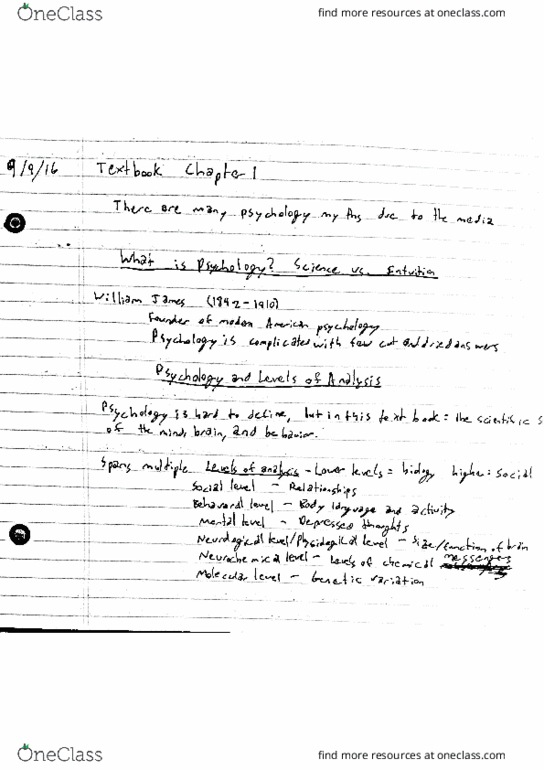 OneClass
find more resources at oneclass.com
9/9/16 Textbook Chapter 1
There are many psychology myths due to the media
What is Psychology? Science vs. Entuition
William James (1842-1910)
Founder of modern American psychology
Psychology is complicated with few cut and dried answers
Psychology and Levels of Analysis
Psychology is hard to define, but in this text book: the scientific s
of the mind, brain, and behavior.
Spans multiple Levels of analysis - Lower levels = biology higher: social
Social level - Relationships
Behavioral level - Body language and activity
Mental level - Depressed thoughts
Neurological level/Physiological level - Size/function of brain
Neurochemical level - Levels of chemical messengers
Molecular level - Genetic variation
OneClass
find more resources at oneclass.com